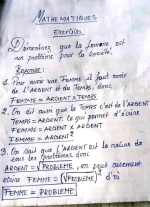 MATHEMATIQUES
Exercices
Démontrez que la femme est
un problème pour la société.
Réponse :
1. Pour avoir une FEMME il faut avoir
de L'ARGENT et du TEMPS, donc
FEMME = ARGENT X TEMPS
2. On dit aussi que le TEMPS c'est de L'ARGENT
TEMPS = ARGENT. Ce qui permet d'écrire
FEMME = ARGENT X ARGENT
FEMME = ARGENT²
3. On dit que L'ARGENT est la racine de
tous les PROBLEMES donc
ARGENT = √PROBLEME, on peut
écrire FEMME = (√PROBLEME)² d'où
FEMME = PROBLEME